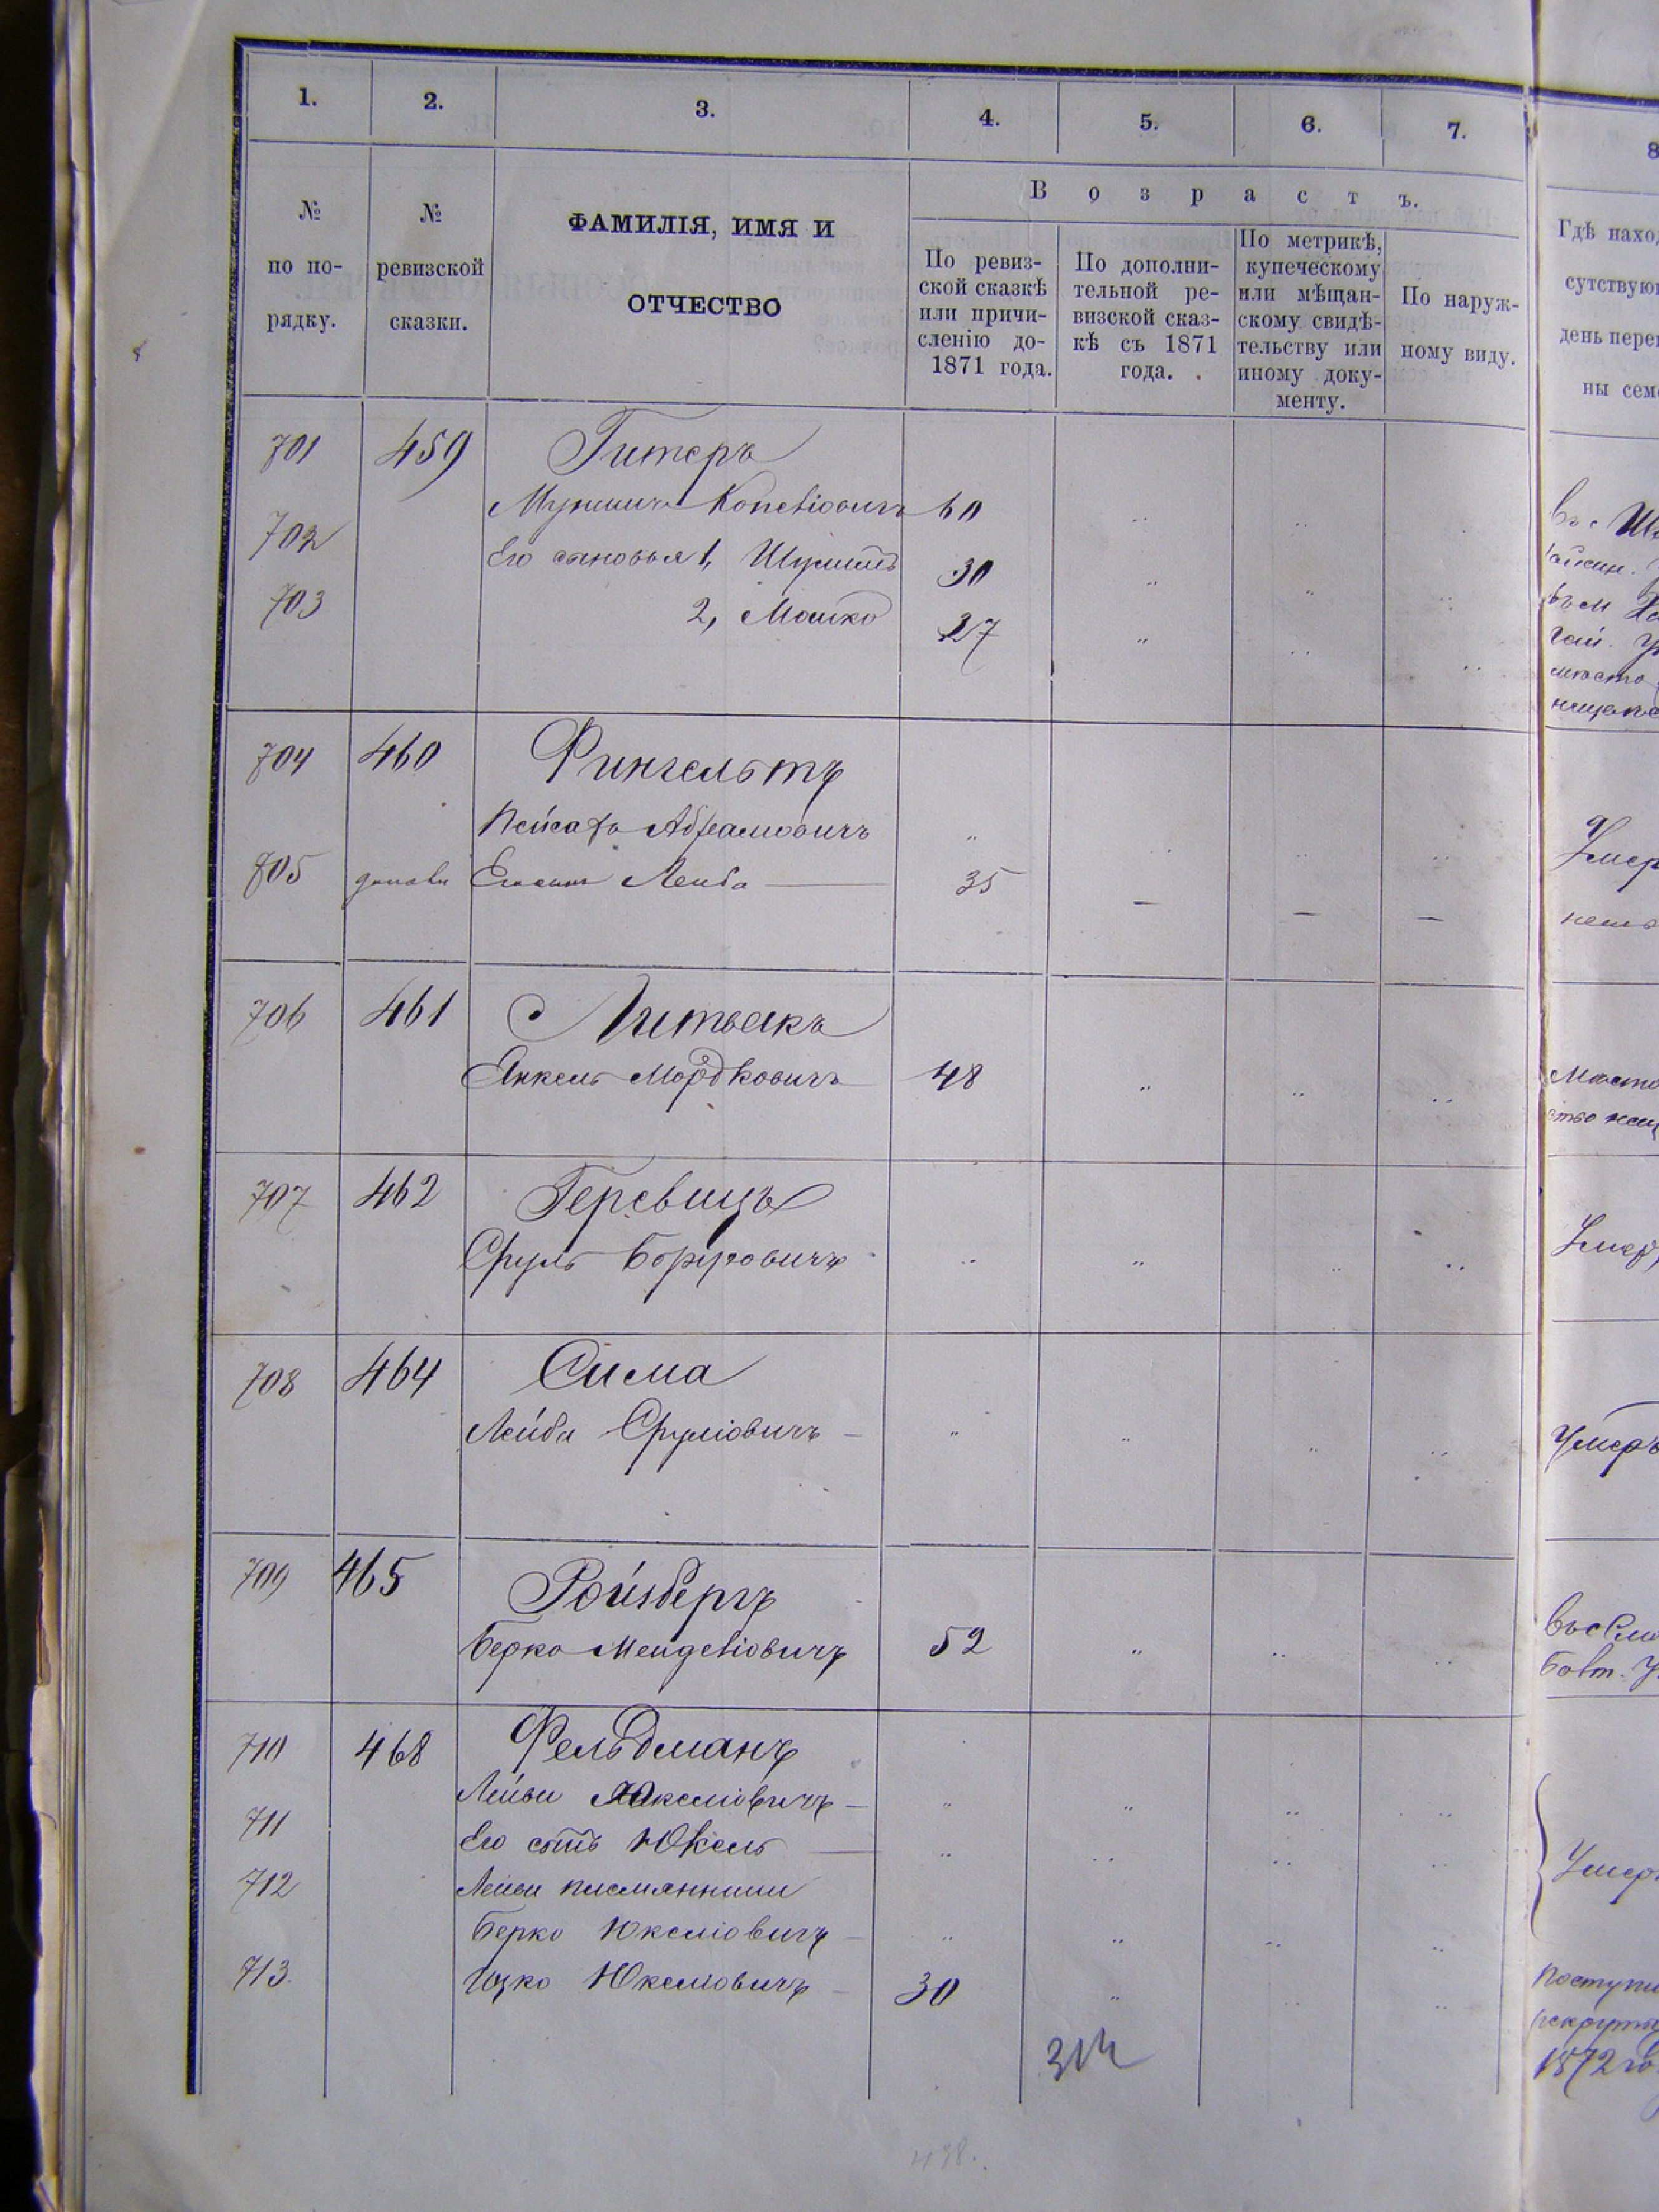 1. 2. 3. 4. 5. 6. 7. 8
№ по по-рядку.
№ ревизской сказки.
ФАМИЛІЯ, ИМЯ И
ОТЧЕСТВО
Возрастъ.
По ревиз-
ской сказкѣ
или причи-
сленію до-
1871 года.
По дополни-
тельной ре-
визской сказ-
кѣ съ 1871
года.
По метрикѣ,
купеческому
или мѣщан-
скому свидѣ-
тельству или
иному доку-
менту.
По наруж-
ному виду.
Гдѣ наход
сутствую
день перев
ны сем
701 459 Гитеръ
60
702 Его сыновья 1, 30
703 2, Мошко 27
704 460 Фингельтъ
Пейсахъ Абрамовичъ
805 Его сынъ Лейба — 35 — — —
706 461 Литвакъ
Янкель Мордковичъ 48
707 462
Сруль Боруховичъ
Умер
708 464 Сима
Лейба Сруліовичъ —
Умеръ
709 465 Ройзбергъ
Берко Менделіовичъ 52
710 468 Фельдманъ
Лейви Юкеліовичъ —
711 Его сынъ Юкель —
712 Лейви племянники
Берко Юкеліовичъ —
Умер
713. Ицко Юкеліовичъ — 30
Поступи
рекруты
1872 го
438.